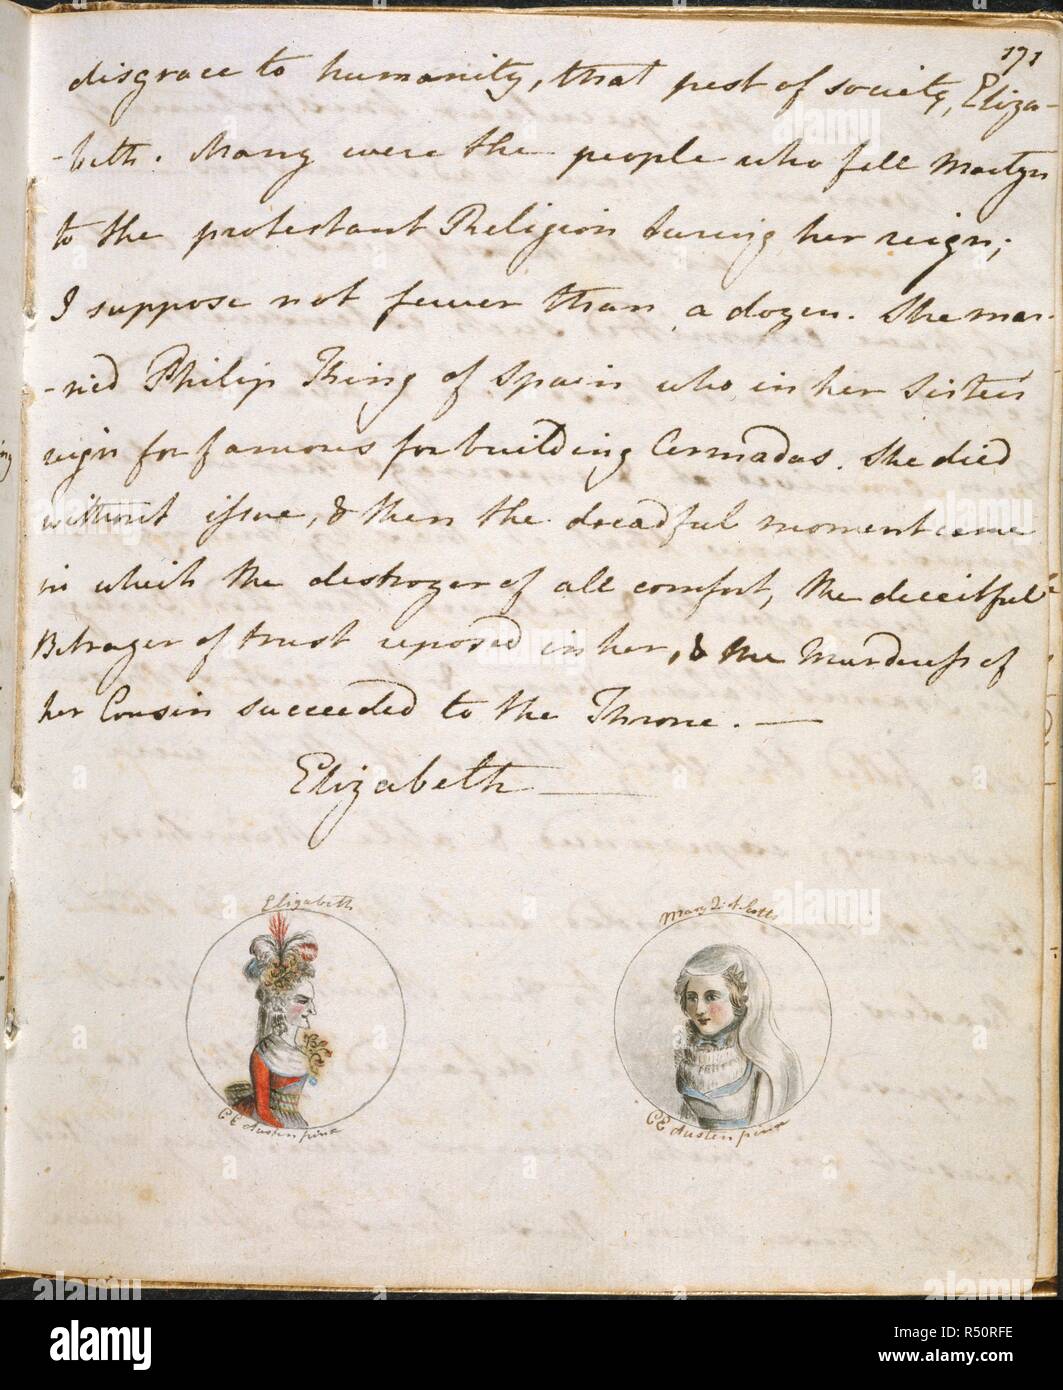 171
disgrace to humanity, that pest of society, Eliza-
-beth. Many were the people who fell Martyrs
to the protestant Religion during her reign;
I suppose not fewer than a dozen. She mar-
-ried Philip King of Spain who in her Sister's
reign for famous for building Armadas. She died
without issue, & then the dreadful moment came
in which the destroyer of all comfort, the deceitful
Betrayer of trust reposed in her, & the Murderess of
her Cousin succeeded to the Throne. —
Elizabeth —
Elizabeth
C E Austen pinx
Mary Q. of Scots
C E Austen pinx
alamy
Image ID: R50RFE
www.alamy.com